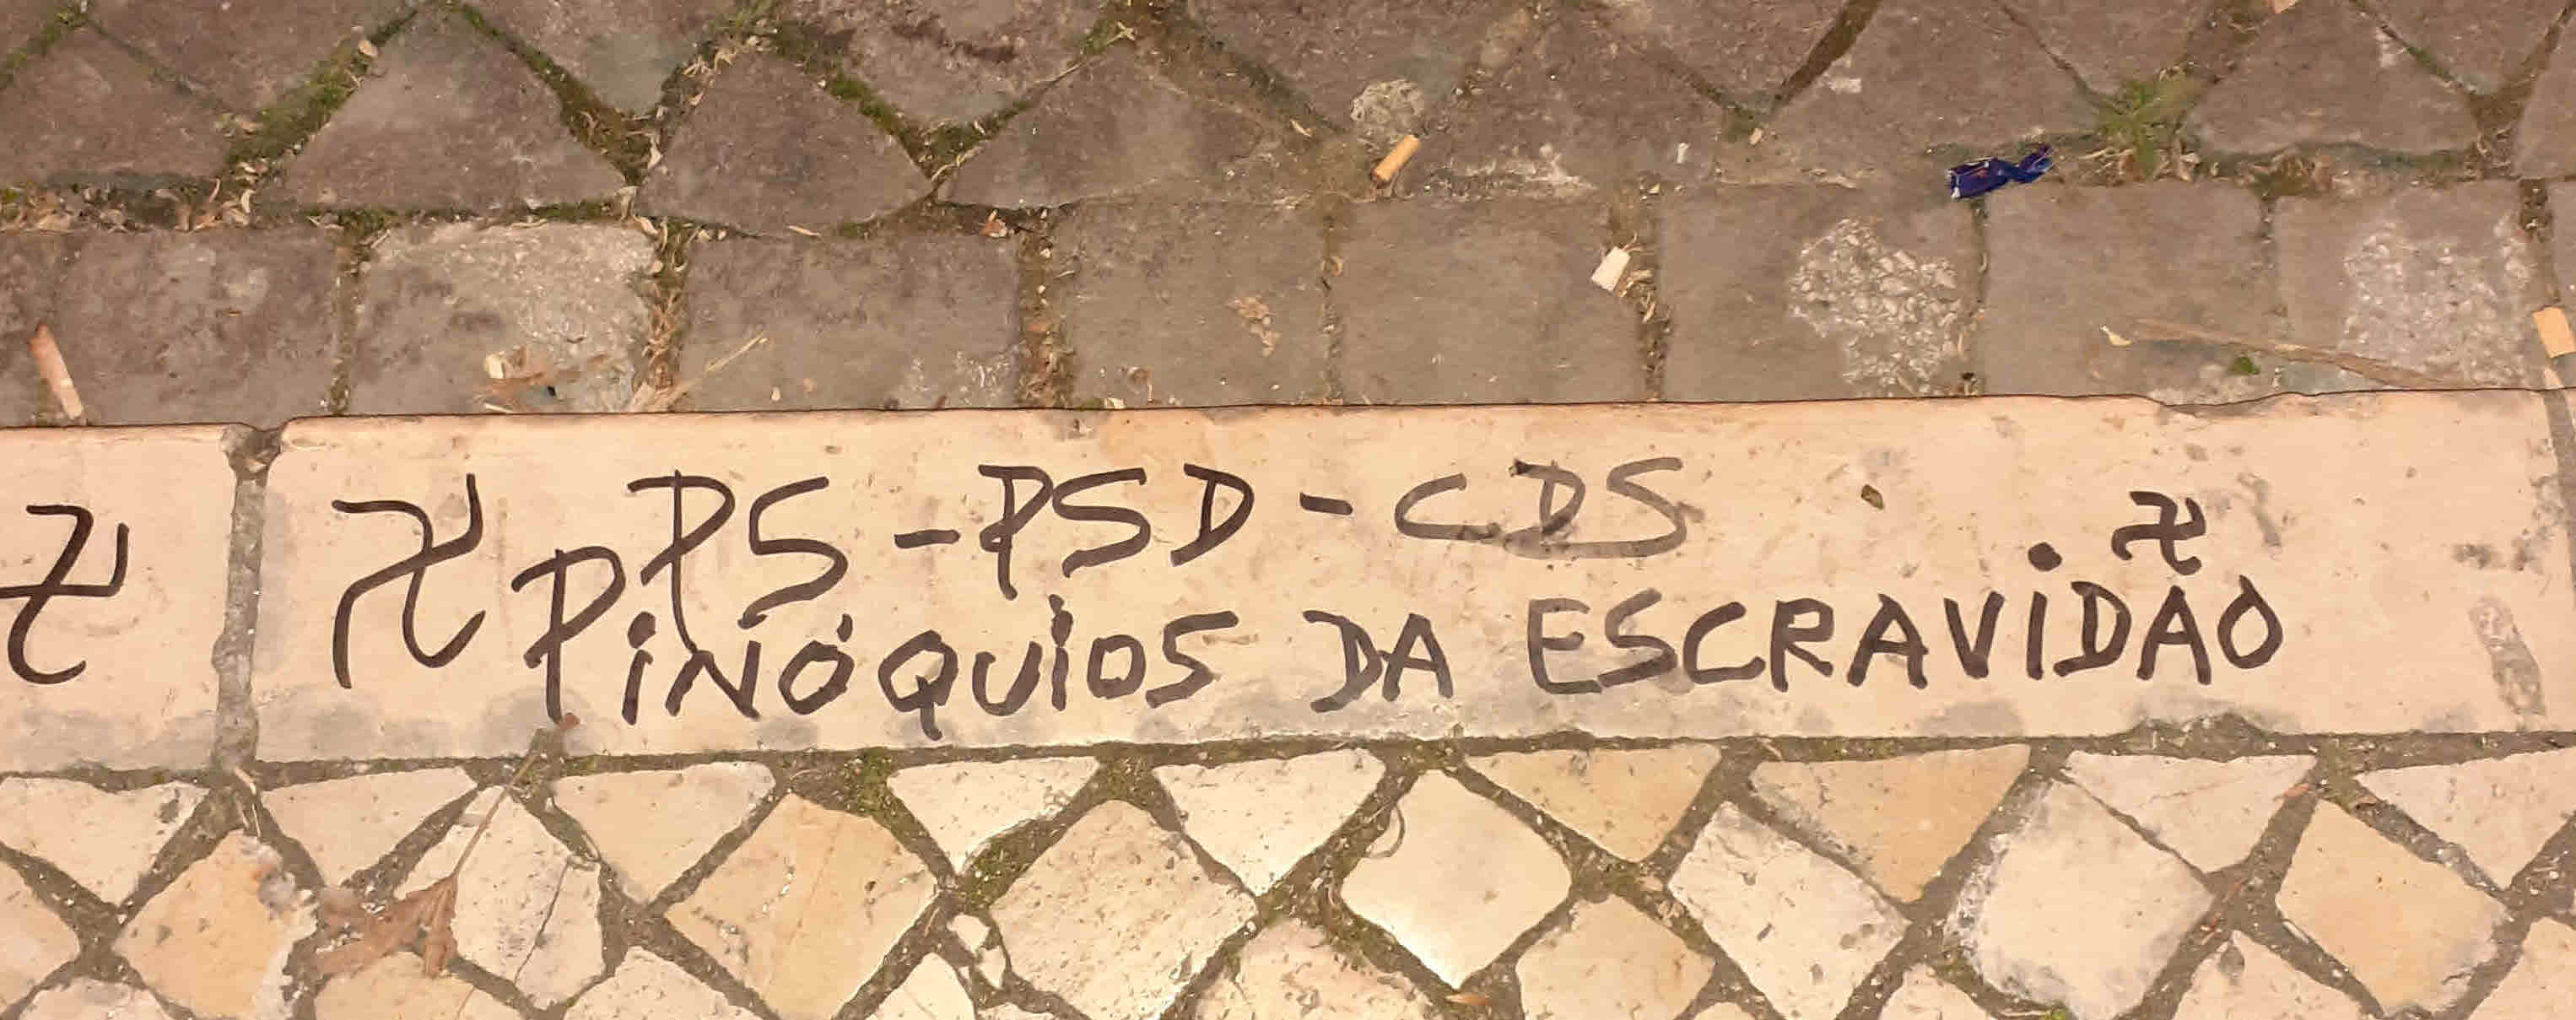 PS-PSD-CDS
PINÓQUIOS DA ESCRAVIDÃO